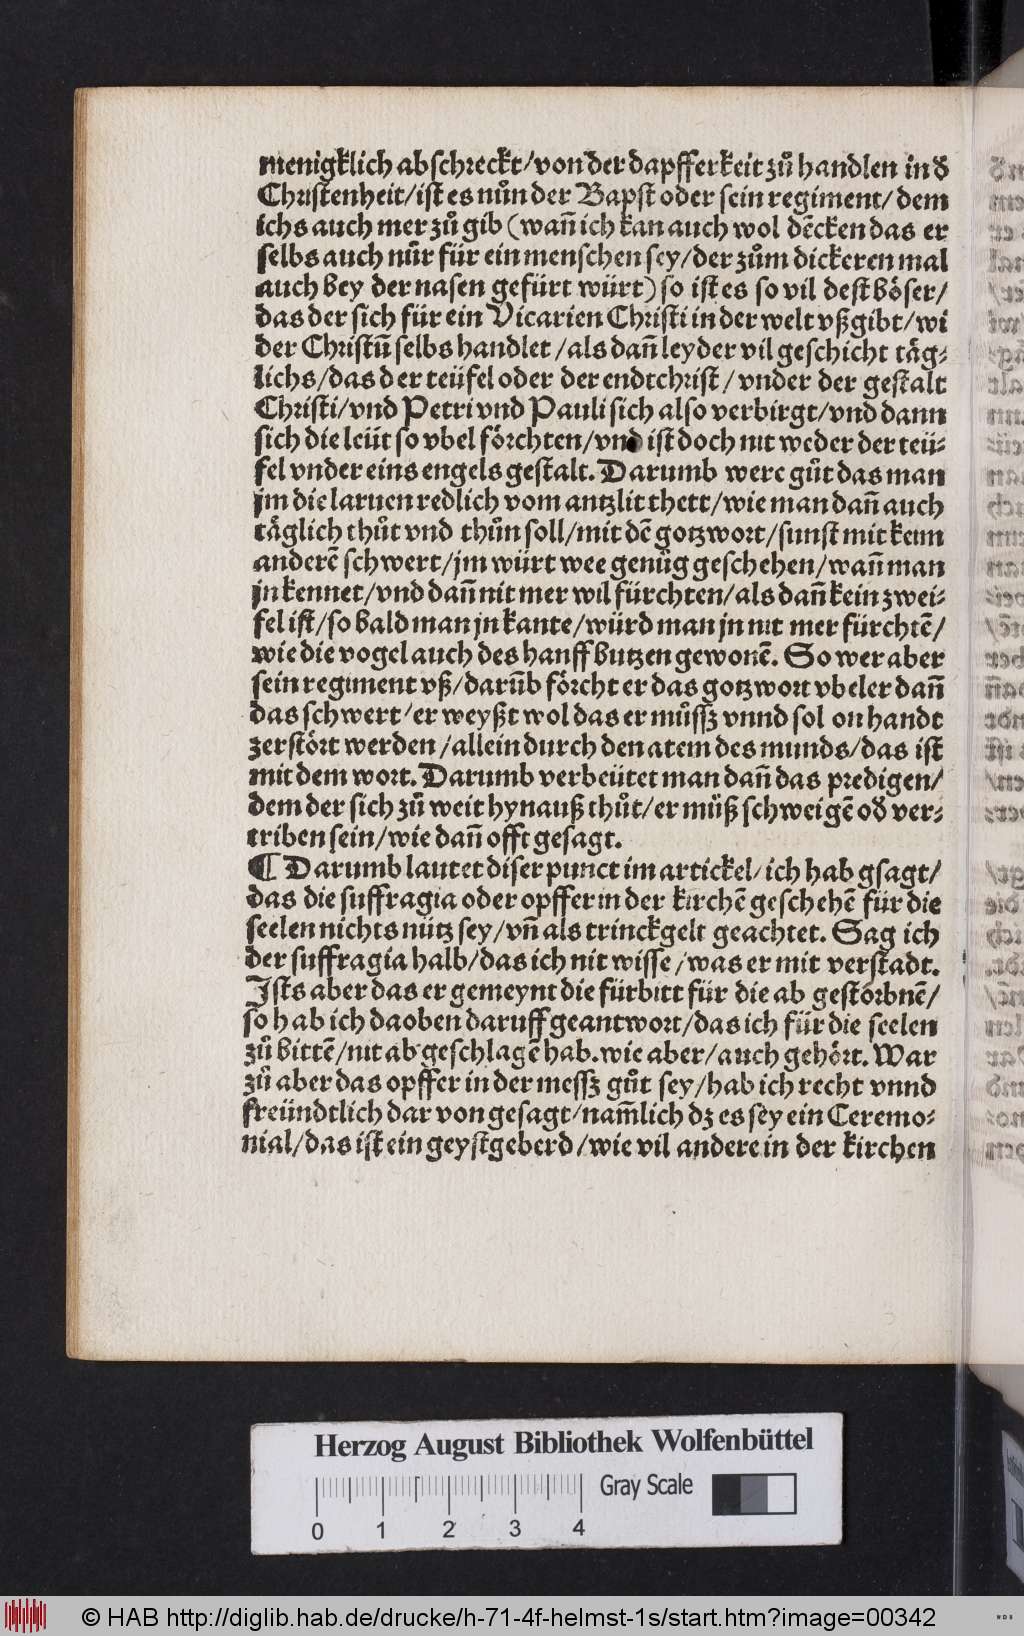 menigklich abschreckt/von der dapfferkeit zů handlen in d̕
Christenheit/ist es nůn der Bapst oder sein regiment/dem
ichs auch mer zů gib (wañ ich kan auch wol dẽcken das er
selbs auch nůr für ein menschen sey/der zům dickeren mal
auch bey der nasen gefürt würt) so ist es so vil dest böser/
das der sich für ein Vicarien Christi in der welt vßgibt/wi
der Christũ selbs handlet/als dañ leyder vil geschicht täg-
lichs/das der teüfel oder der endtchrist/vnder der gestalt
Christi/vnd Petri vnd Pauli sich also verbirgt/vnd dann
sich die leüt so vbel förchten/vnd ist doch nit weder der teü-
fel vnder eins engels gestalt. Darumb were gůt das man
jm die laruen redlich vom antzlit thett/wie man dañ auch
täglich thůt vnd thůn soll/mit dẽ gotzwort/sunst mit keim
anderẽ schwert/jm würt wee genůg geschehen/wañ man
jn kennet/vnd dañ nit mer wil fürchten/als dañ kein zwei-
fel ist/so bald man jn kante/würd man jn nit mer fürchtẽ/
wie die vogel auch des hanffbutzen gewonẽ. So wer aber
sein regiment vß/darũb förcht er das gotzwort vbeler dañ
das schwert/er weyßt wol das er můssz vnnd sol on handt
zerstört werden/allein durch den atem des munds/das ist
mit dem wort. Darumb verbeütet man dañ das predigen/
dem der sich zů weit hynauß thůt/er můß schweigẽ od̕ ver-
triben sein/wie dañ offt gesagt.
¶ Darumb lautet diser punct im artickel/ich hab gsagt/
das die suffragia oder opffer in der kirchẽ geschehẽ für die
seelen nichts nütz sey/vñ als trinckgelt geachtet. Sag ich
der suffragia halb/das ich nit wisse/was er mit verstadt.
Ists aber das er gemeynt die fürbitt für die abgestorbnẽ/
so hab ich daoben daruff geantwort/das ich für die seelen
zů bittẽ/nit abgeschlagẽ hab. wie aber/auch gehört. War
zů aber das opffer in der messz gůt sey/hab ich recht vnnd
freündtlich dar von gesagt/nam̃lich dz es sey ein Ceremo-
nial/das ist ein geystgeberd/wie vil andere in der kirchen
Herzog August Bibliothek Wolfenbüttel
Gray Scale
0 1 2 3 4
© HAB http://diglib.hab.de/drucke/h-71-4f-helmst-1s/start.htm?image=00342